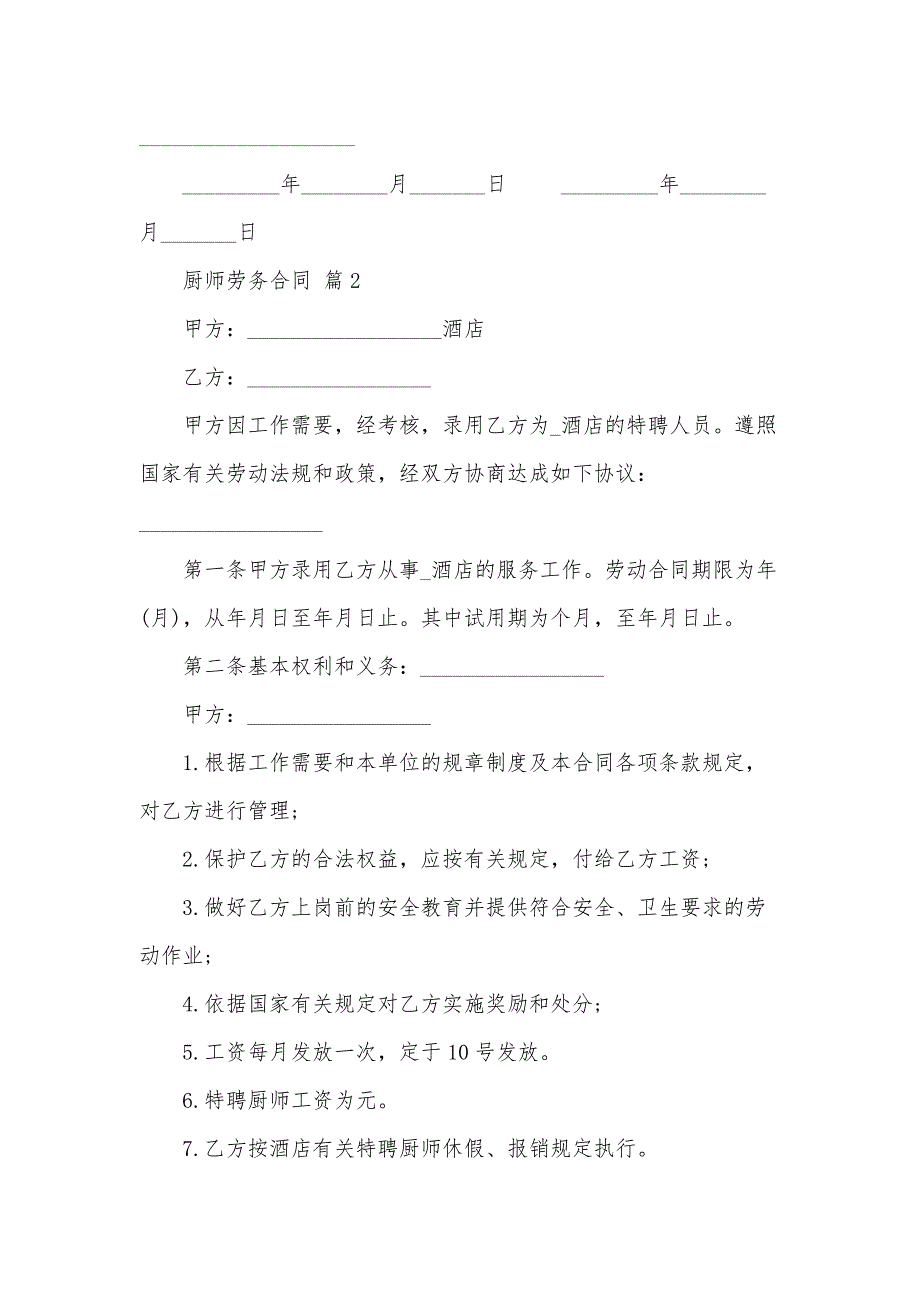 ____________________
_________年________月_______日 _________年________
月_______日
厨师劳务合同 篇2
甲方：__________________酒店
乙方：_________________
甲方因工作需要，经考核，录用乙方为_酒店的特聘人员。遵照
国家有关劳动法规和政策，经双方协商达成如下协议：
_________________
第一条甲方录用乙方从事_酒店的服务工作。劳动合同期限为年
(月)，从年月日至年月日止。其中试用期为个月，至年月日止。
第二条基本权利和义务：_________________
甲方：_________________
1.根据工作需要和本单位的规章制度及本合同各项条款规定，
对乙方进行管理;
2.保护乙方的合法权益，应按有关规定，付给乙方工资;
3.做好乙方上岗前的安全教育并提供符合安全、卫生要求的劳
动作业;
4.依据国家有关规定对乙方实施奖励和处分;
5.工资每月发放一次，定于10号发放。
6.特聘厨师工资为元。
7.乙方按酒店有关特聘厨师休假、报销规定执行。